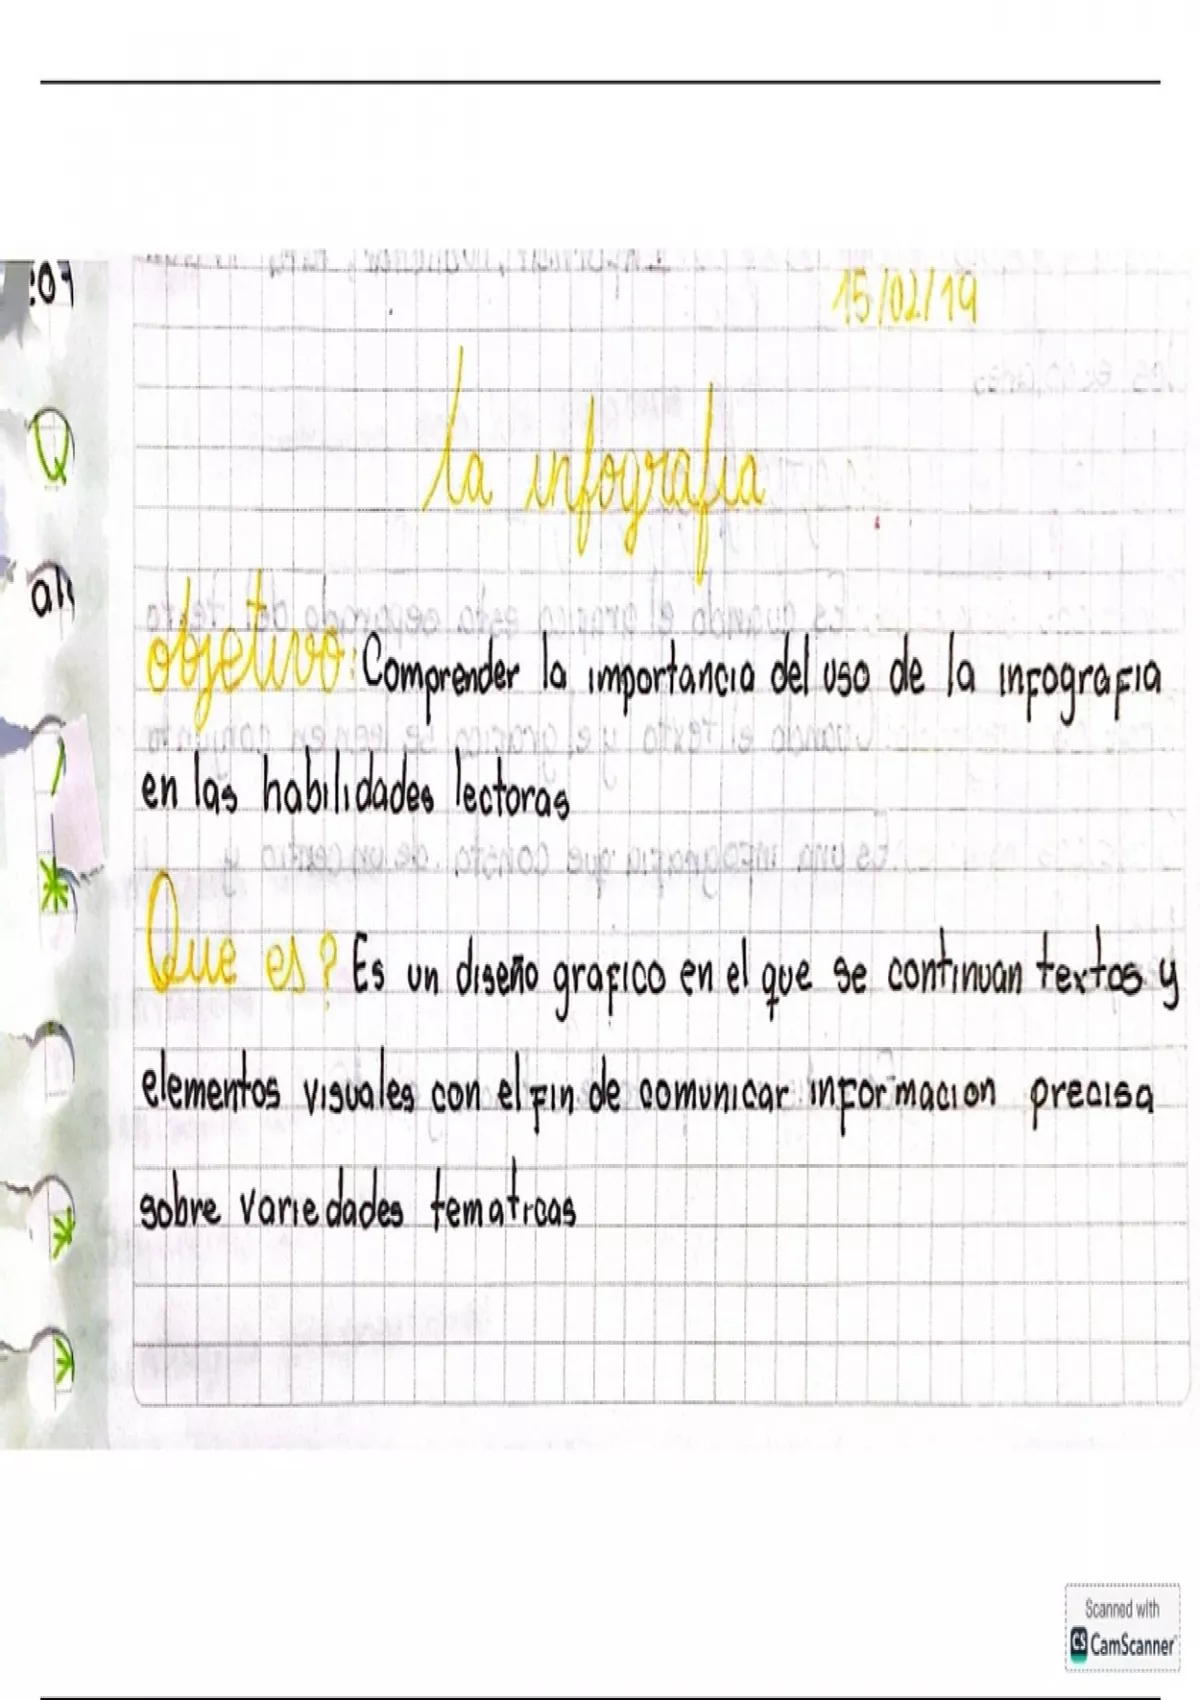 15/02/19
La infografia
objetivo: Comprender la importancia del uso de la infografia
en las habilidades lectoras
Que es? Es un diseño grafico en el que se continuan textos y
elementos visuales con el fin de comunicar informacion precisa
sobre variedades tematicas
Scanned with
CS CamScanner